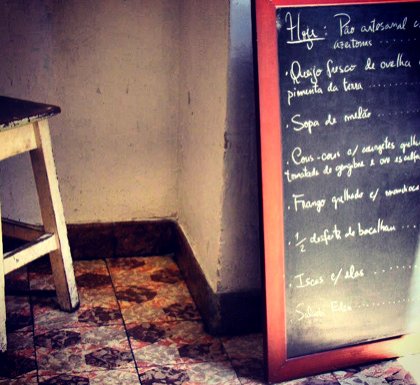 Hoje: Pão artesanal c
azeitonas
. Queijo fresco de ovelha
pimenta da terra
. Sopa de melão
. Cous-cous c/ courgetes
tomatada de gengibre e ovo
. Frango grelhado c/
. 1/2 desfeita de bacalhau
. Iscas c/ elas